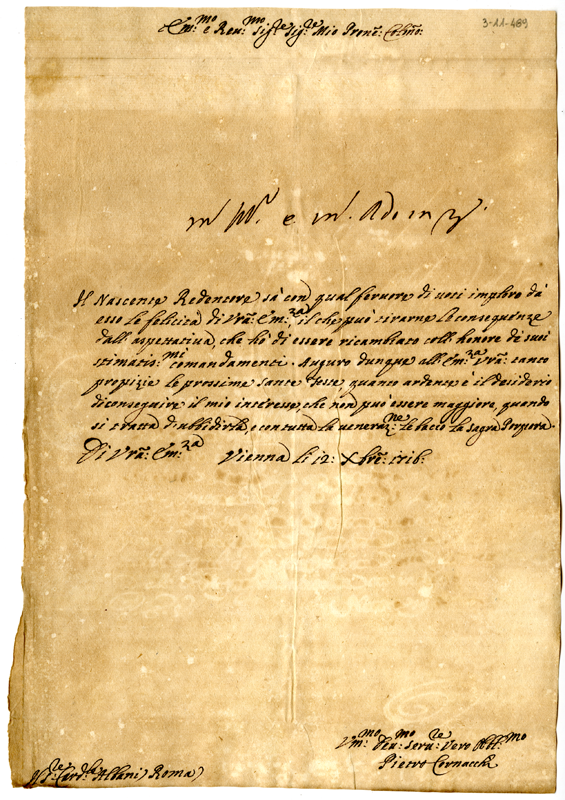 3-11-489
Em:mo e Reu:mo Sig:re Sig:re Mio Pron̄e: Col:mo:
e
Il Nascente Redentore sà con qual feruore di uoti imploro dà
esso le felicità di Vr̄a: Em:za, il che può tirarne la conseguenze
dall' aspettatiua, che hò di essere ricambiato coll' honore dè suoi
stimatis:mi comandamenti. Auguro dunque all' Em:za Vr̄a: tanto
propizie le prossime sante Feste, quanto ardente è il desiderio
di conseguire il mio interesse, che non può essere maggiore, quando
si tratta di ubbidirla, e con tutta la ueneraz:ne le bacio la sagra Porpora.
Di Vr̄a: Em:za Vienna li 12: Xbr̄e: 1716:
Vm:mo Deu:mo Seru:re Vero Obl:mo
Pietro Cornacchi
Sr: Card:le Albani Roma